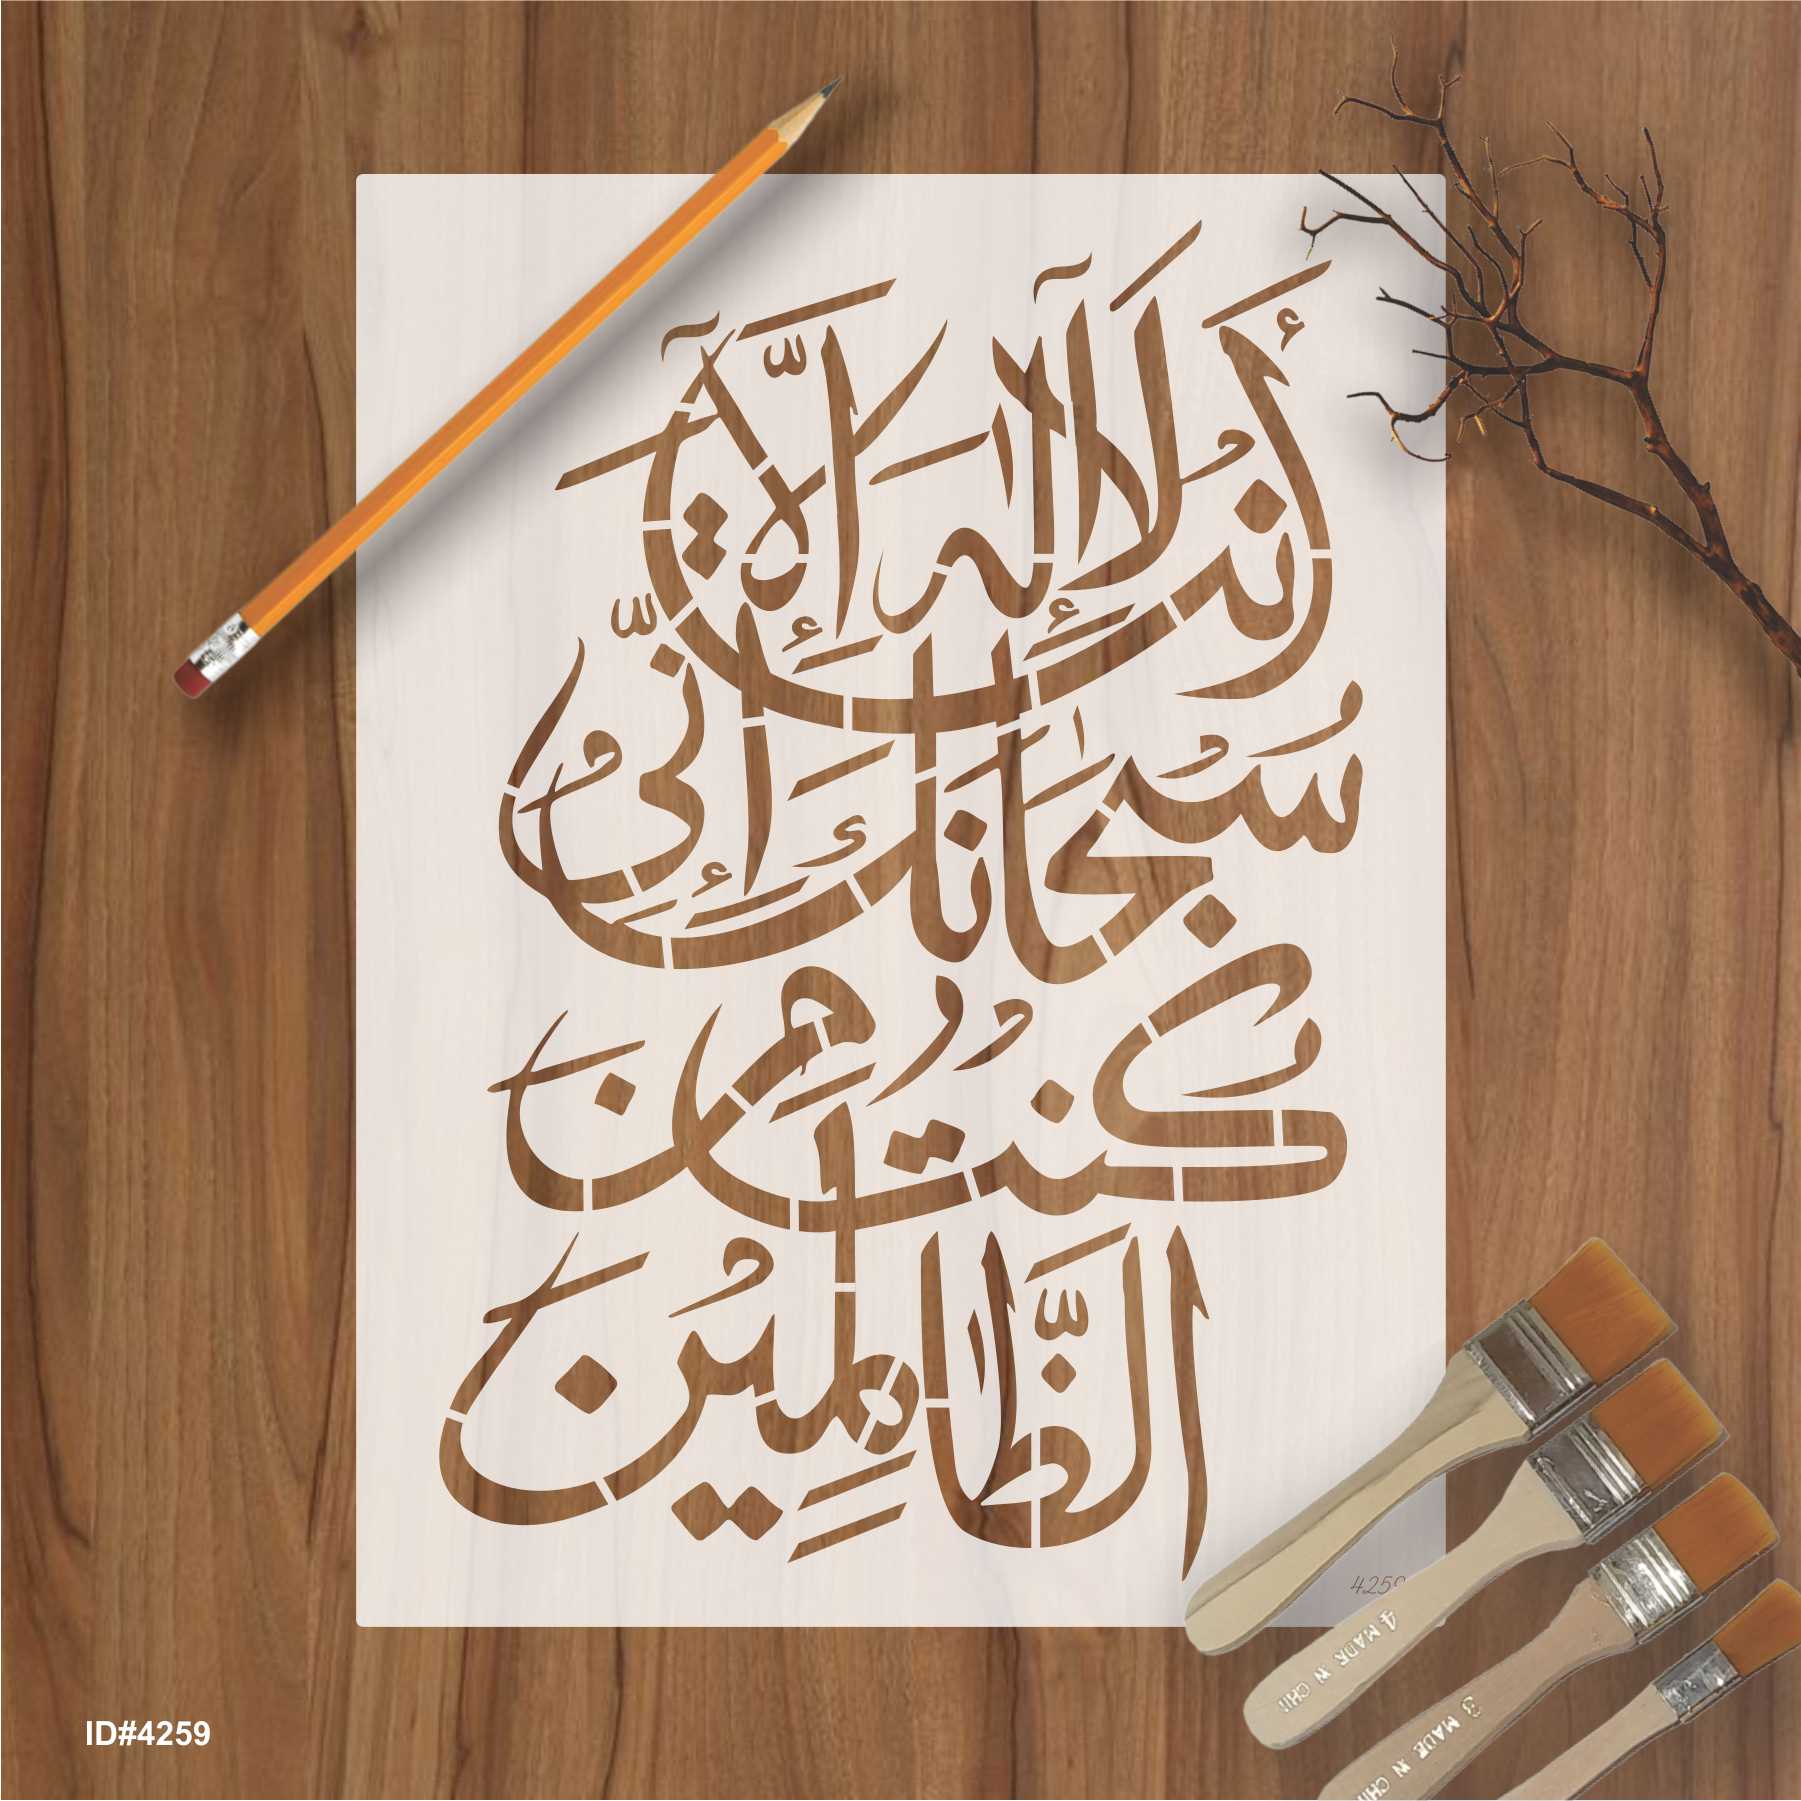 لَآ إِلَٰهَ إِلَّآ أَنْتَ
سُبْحَانَكَ إِنِّي
كُنْتُ مِنَ
الظَّالِمِينَ
4259
4 MADE IN CHI
3 MADE IN CHI
ID#4259